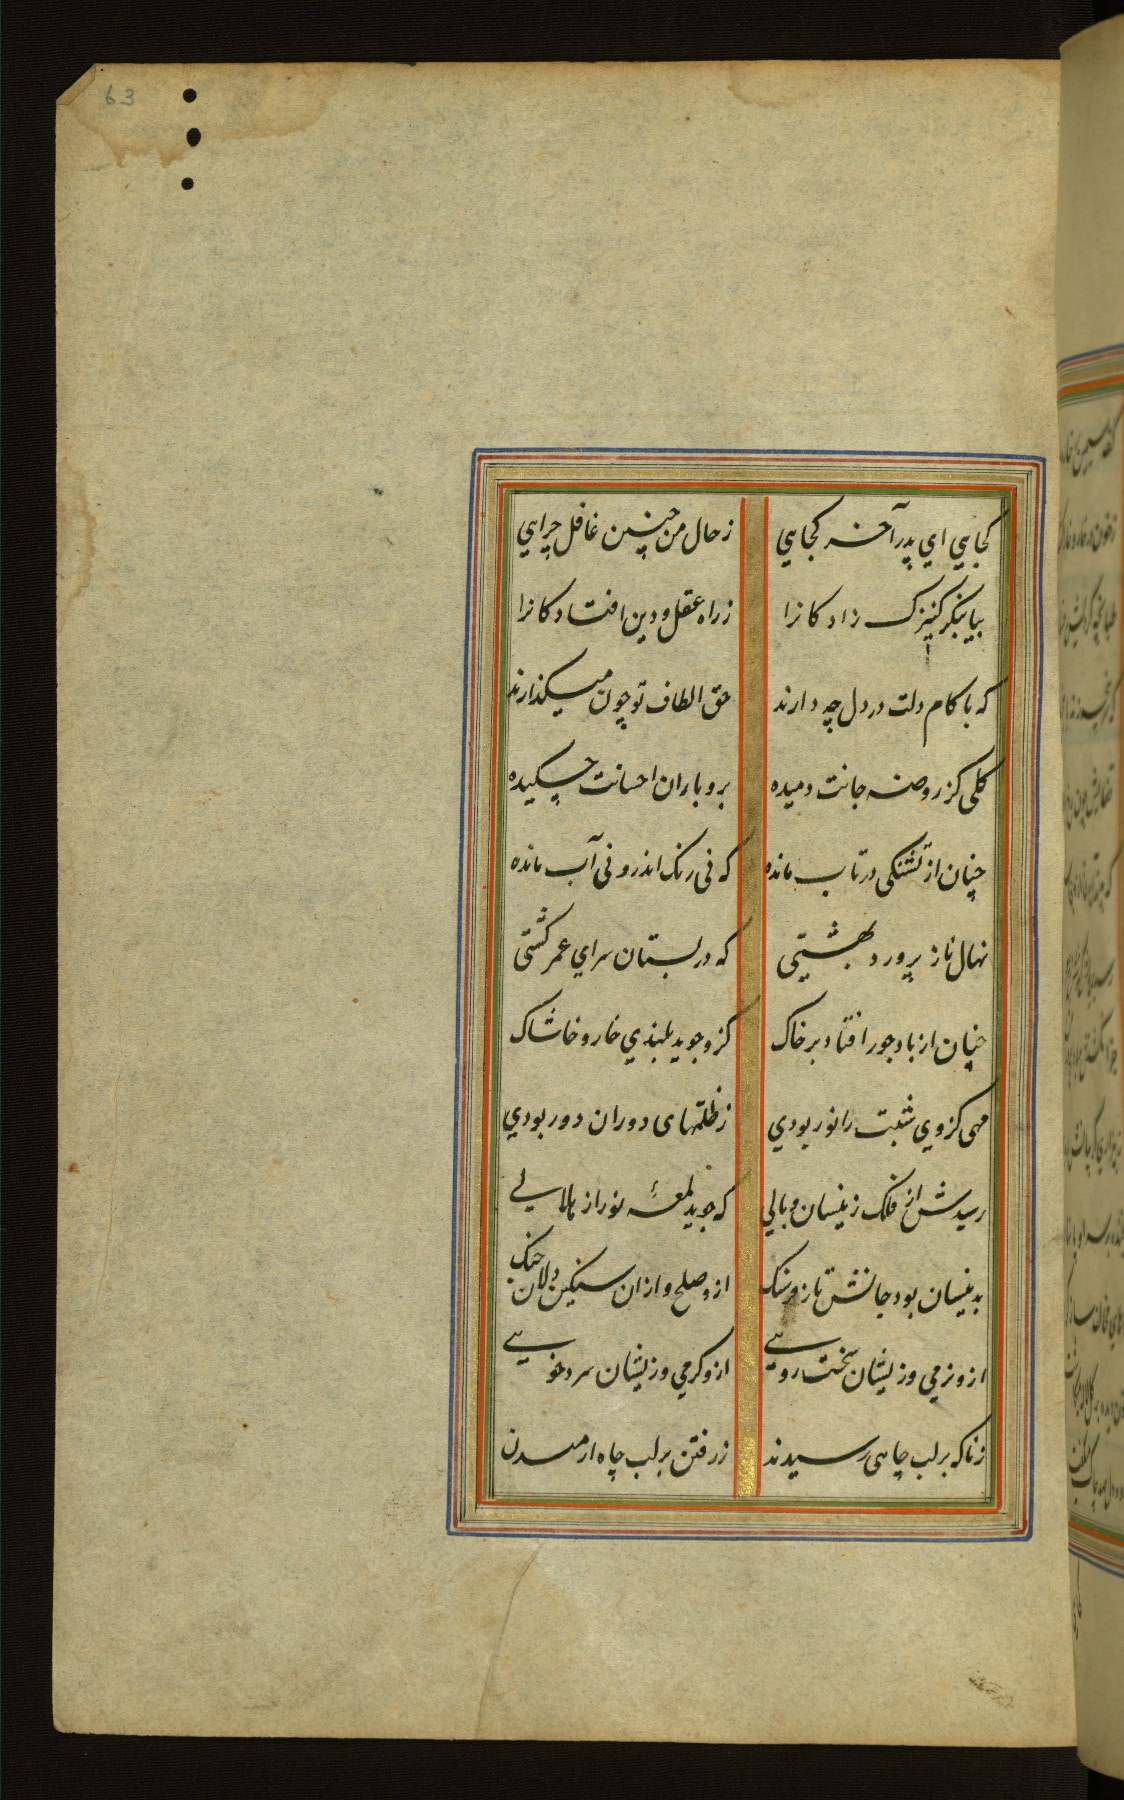 63
کجایي اي پدر آخر کجایي زحال من چنین غافل چرایي
بیا بنکر کنیزک زادکانرا زراه عقل و دین افتادکانرا
که با کام دلت در دل چه دارند حق الطاف تو چون میکذارند
کلی کز روضه جانت دمیده برو باران احسانت چکیده
چنان از تشنکی در تاب مانده که نی رنک اندرو نی آب مانده
نهال ناز پرورد بهشتی که در بستان سراي عمر کشتی
چنان از باد جور افتاد بر خاک کزو جوید بلندي خار و خاشاک
مهی کزوي شبت را نور بودي زظلمتهای دوران دور بودي
رسیدش از فلک زینسان وبالي که جوید لمعهٔ نور از هلالی
بدینسان بود جانش تا دو فرسنک ازو صلح و ازان سنکین دلان جنک
ازو نرمي وزیشان سخت رویی ازو کرمي وزیشان سرد خویی
زناکه بر لب چاهی رسیدند زرفتن بر لب چاه ارمیدند